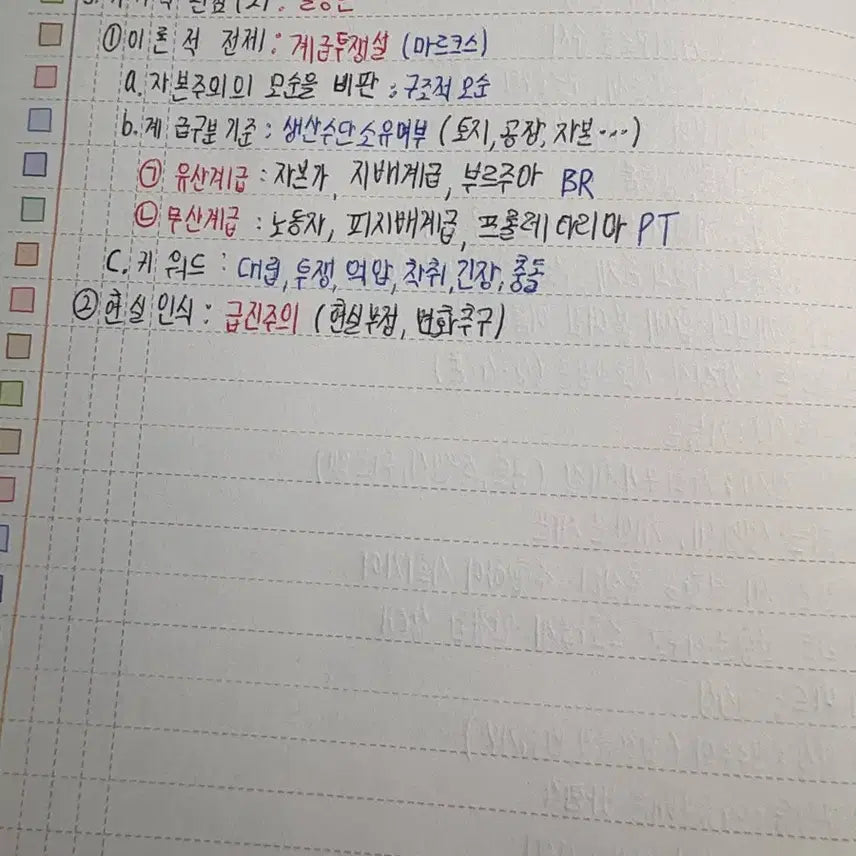 ① 이론적 전제 : 계급투쟁설 (마르크스)
a. 자본주의의 모순을 비판 : 구조적 모순
b. 계급구분 기준 : 생산수단 소유여부 (토지, 공장, 자본…)
㉠ 유산계급 : 자본가, 지배계급, 부르주아 BR
㉡ 무산계급 : 노동자, 피지배계급, 프롤레타리아 PT
C. 키워드 : 대립, 투쟁, 억압, 착취, 긴장, 충돌
② 현실 인식 : 급진주의 (현실부정, 변화추구)